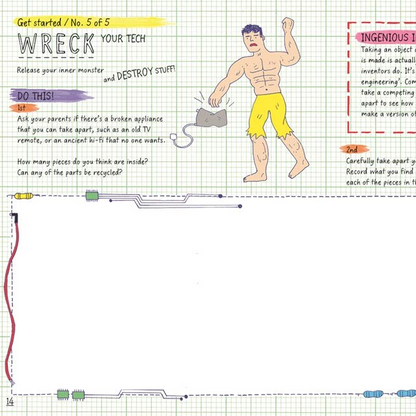 Get started / No. 5 of 5
WRECK YOUR TECH
Release your inner monster
and DESTROY STUFF!
DO THIS!
1st
Ask your parents if there's a broken appliance
that you can take apart, such as an old TV
remote, or an ancient hi-fi that no one wants.
How many pieces do you think are inside?
Can any of the parts be recycled?
INGENIOUS I
Taking an object
is made is actuall
inventors do. It's
engineering". Com
take a competing
apart to see how
make a version of
2nd
Carefully take apart y
Record what you find
each of the pieces in t
14